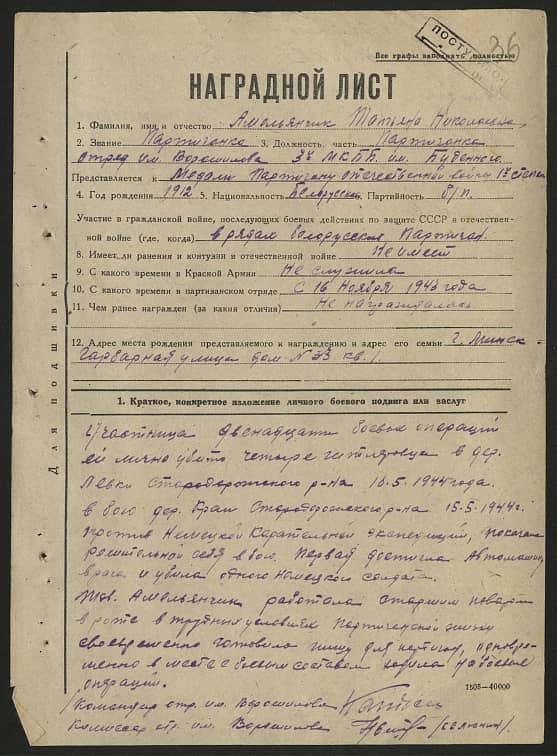 36
ПОСТУП
Все графы заполнять полностью
НАГРАДНОЙ ЛИСТ
1. Фамилия, имя и отчество Амольянчик Татьяна Николаевна
2. Звание Партизанка 3. Должность, часть Партизанка
отряд им. Ворошилова 3й МКПБ. им. Буденного
Представляется к Медали Партизану отечественной войны 1й степени
4. Год рождения 1912 5. Национальность Белорусска Партийность б/п.
Участие в гражданской войне, последующих боевых действиях по защите СССР и отечествен-
ной войне (где, когда) в рядах белорусских Партизан
8. Имеет ли ранения и контузии в отечественной войне Не имеет
9. С какого времени в Красной Армии Не служила
10. С какого времени в партизанском отряде С 16 Ноября 1943 года
11. Чем ранее награжден (за какия отличия) Не награждалась
12. Адрес места рождения представляемого к награждению и адрес его семьи г. Минск
Гарбарная улица дом N 33 кв. 1.
Для подшивки
1. Краткое, конкретное изложение личного боевого подвига или заслуг
Участница двенадцати боевых операций
ей лично убито четыре гитлеровца в дер.
Левки Стародорожского р-на 10.5.1944 года.
в бою дер. Стародорожского р-на 15.5.1944г.
против Немецкой Карательной экспедиций, показала
решительной себя в бою. Первая достигла Автомашину
врага и убила одного Немецкого солдата.
Тов. Амольянчик работала старшим поваром
в роте в трудных условиях Партизанской жизни
своевременно готовила пищу для партизан, одновре-
менно вместе с боевым составом ходила на боевые
операций.
1505—40000
Командир отр. им. Ворошилова
Комиссар отр. им. Ворошилова